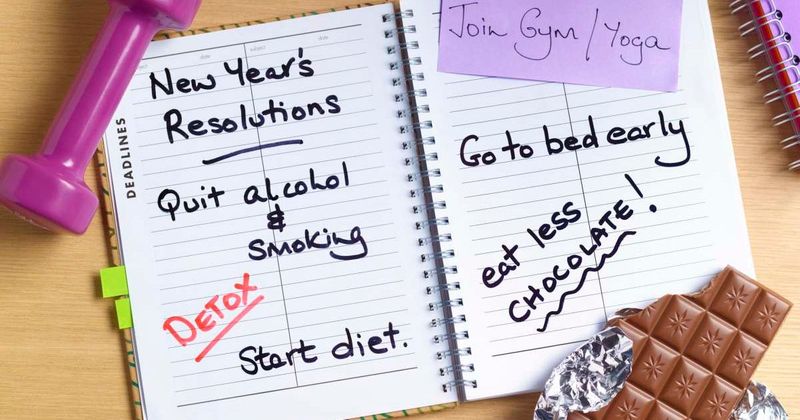 DEADLINES
New Year's
Resolutions
Quit alcohol
&
smoking
DETOX
Start diet.
Join Gym / Yoga
Go to bed early
eat less
CHOCOLATE!